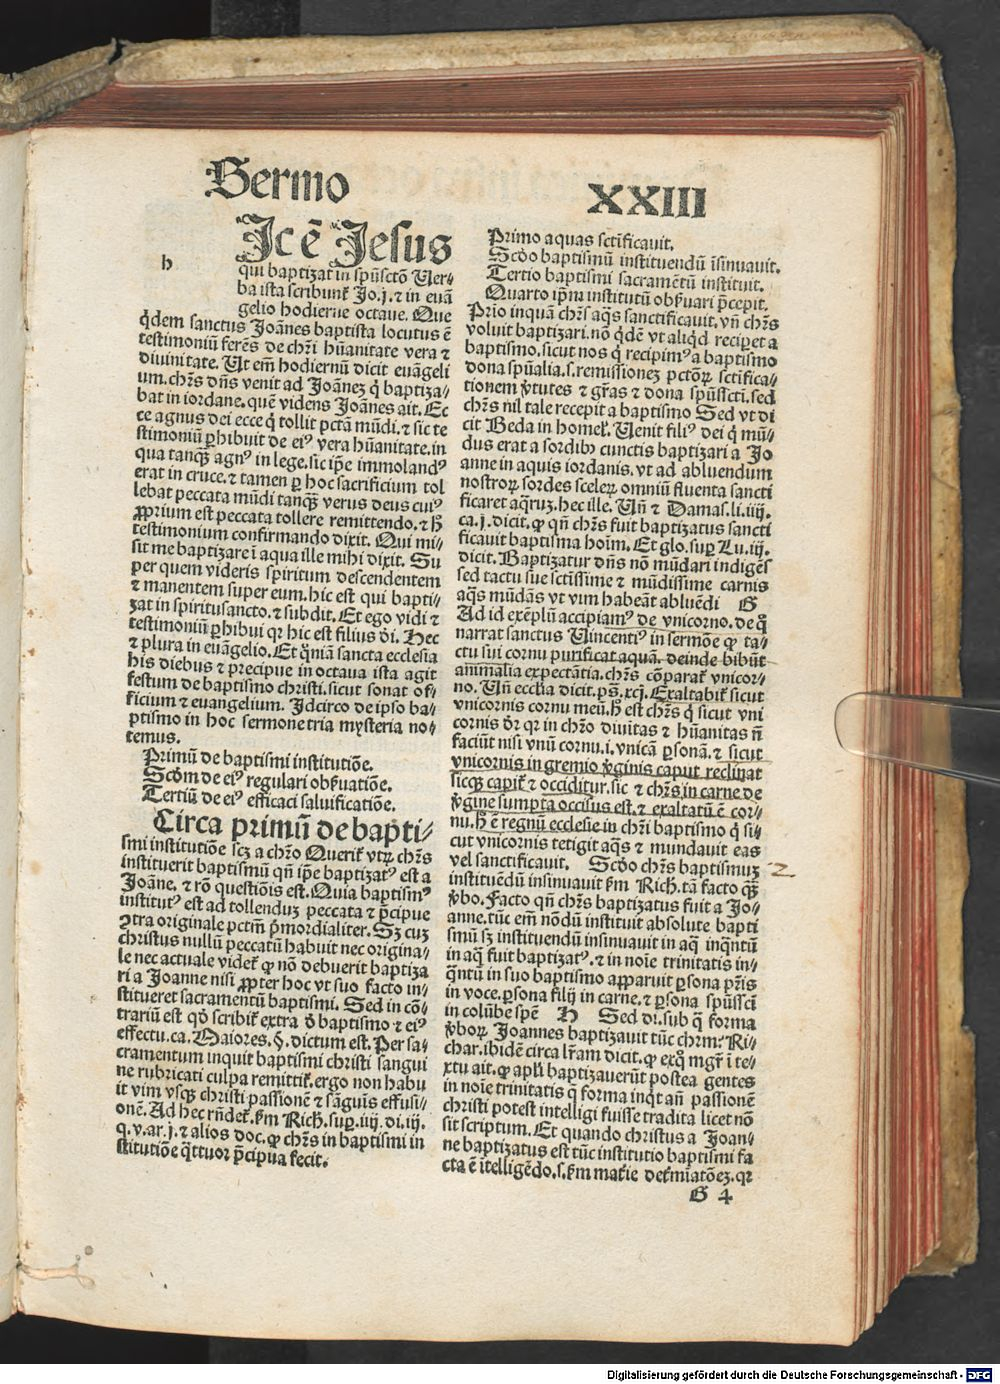 Sermo
XXIII
h
Jc ē Jesus
qui baptizat in spūsctō Ver⸗
ba ista scribunt᷑ Jo.j. ⁊ in euā
gelio hodierne octaue. Que
q̇dem sanctus Joānes baptista locutus ē
testimoniū ferēs de chri hūanitate vera ⁊
diuinitate. Ut em̄ hodiernū dicit euāgeli
um. chrs dn̄s venit ad Joānez q̇ baptiza⸗
bat in iordane. quē videns Joānes ait. Ec
ce agnus dei ecce q̇ tollit pctā mūdi. ⁊ sic te
stimoniū ꝑhibuit de eiꝰ vera hūanitate. in
qua tanqȝ agnꝰ in lege. sic ip̄e immolandꝰ
erat in cruce. ⁊ tamen ꝑ hoc sacrificium tol
lebat peccata mūdi tanqȝ verus deus cuiꝰ
ꝓprium est peccata tollere remittendo. ⁊ h̄
testimonium confirmando dixit. Qui mi⸗
sit me baptizare ī aqua ille mihi dixit. Su
per quem videris spiritum descendentem
⁊ manentem super eum. hic est qui bapti⸗
zat in spiritusancto. ⁊ subdit. Et ego vidi ⁊
testimoniū ꝑhibui qꝛ hic est filius d̄i. Hec
⁊ plura in euāgelio. Et qm̄iā sancta ecclesia
his diebus ⁊ precipue in octaua ista agit
festum de baptismo christi. sicut sonat of⸗
ficium ⁊ euangelium. Idcirco de ipso ba⸗
ptismo in hoc sermone tria mysteria no⸗
temus.
Primū de baptismi institutiōe.
Scd̄m de eiꝰ regulari obẜuatiōe.
Tertiū de eiꝰ efficaci saluificatiōe.
Circa primū de bapti⸗
smi institutiōe scȝ a chro Querit᷑ vtꝝ chrs
instituerit baptismū qn̄ ip̄e baptizatꝰ est a
Joāne. ⁊ rō questiōis est. Quia baptismꝰ
institutꝰ est ad tollenduȝ peccata ⁊ p̄cipue
ꝯtra originale pctm̄ pͥmordialiter. Sȝ cuȝ
christus nullū peccatū habuit nec origina⸗
le nec actuale videt᷑ ꝙ nō debuerit baptiza
ri a Joanne nisi ꝓpter hoc vt suo facto in⸗
stitueret sacramentū baptismi. Sed in cō⸗
trariū est qd̄ scribit᷑ extra d̄ baptismo ⁊ eiꝰ
effectu. ca. Maiores. §. dictum est. Per sa⸗
cramentum inquit baptismi christi sangui
ne rubricati culpa remittit᷑. ergo non habu
it vim vsqȝ christi passionē ⁊ sāguīs effusi⸗
onē. Ad hec rn̄det᷑. ẜm Rich. suꝑ. iiij. di. iij.
q. v. ar. j. ⁊ alios doc. ꝙ chrs in baptismi in
stitutiōe q̇ttuor p̄cipua fecit.
Primo aquas sctīficauit.
Scd̄o baptismū instituendū īsinuauit.
Tertio baptismi sacramētū instituit.
Quarto ip̄m institutū obẜuari p̄cepit.
Prīo inquā chrs aq̄s sanctificauit. vn̄ chrs
voluit baptizari. nō q̇dē vt aliqd̄ reciꝑet a
baptismo. sicut nos q̇ recipimꝰ a baptismo
dona spūalia. s. remissionez pctōꝝ sctīfica⸗
tionem v̇tutes ⁊ gr̄as ⁊ dona spūsscti. sed
chrs nil tale recepit a baptismo Sed vt di
cit Beda in homel. Venit filiꝰ dei q̇ mū⸗
dus erat a sordibꝫ cunctis baptizari a Jo
anne in aquis iordanis. vt ad abluendum
nostroꝝ sordes sceleꝝ omniū fluenta sancti
ficaret aq̄rꝫ. hec ille. Vn̄ ⁊ Damas. li. iiij.
ca. j. dicit. ꝙ qn̄ chrs fuit baptizatus sancti
ficauit baptisma hoīm. Et glo. suꝑ Lu. iij.
dicit. Baptizatur dn̄s nō mūdari indigēs
sed tactu sue sctīssime ⁊ mūdissime carnis
aq̄s mūdās vt vim habeāt abluēdi G
Ad id exēplū accipiamꝰ de vnicorno. de q̊
narrat sanctus Vincentiꝰ in sermōe ꝙ ta⸗
ctu sui cornu purificat aquā. deinde bibūt
animalia expectātia. chrs cōparat᷑ vnicor⸗
no. Vn̄ ecclīa dicit. ps. xcj. Exaltabit᷑ sicut
vnicornis cornu meū. h̄ est chrs q̇ sicut vni
cornis dr̄ qꝛ in chro diuitas ⁊ hūanitas n̄
faciūt nisi vnū cornu. i. vnicā ꝑsonā. ⁊ sicut
vnicornis in gremio v̇ginis caput reclinat
sicqȝ capit᷑ ⁊ occiditur. sic ⁊ chrs in carne de
v̇gine sumpta occisus est. ⁊ exaltatū ē cor⸗
nu. h̄ ē regnū ecclesie in chri baptismo q̇ si⸗
cut vnicornis tetigit aq̄s ⁊ mundauit eas
vel sanctificauit. Scd̄o chrs baptismuȝ
instituēdū insinuauit ẜm Rich. tā facto qȝ
v̇bo. Facto qn̄ chrs baptizatus fuit a Jo⸗
anne. tūc em̄ nōdū instituit absolute bapti
smū sȝ instituendū insinuauit in aq̄ inq̄ntū
in aq̄ fuit baptizatꝰ. ⁊ in noīe trinitatis in⸗
q̄ntū in suo baptismo apparuit ꝑsona pr̄is
in voce. ꝑsona filij in carne. ⁊ ꝑsona spūsscī
in colūbe spē H Sed di. sub q̄ forma
v̇boꝝ Joannes baptizauit tūc chrm: Ri⸗
char. ibidē circa lr̄am dicit. ꝙ exq̊ mgr̄ ī te⸗
xtu ait. ꝙ apl̄i baptizauerūt postea gentes
in noīe trinitatis q̄ forma inqt an̄ passionē
christi potest intelligi fuisse tradita licet nō
sit scriptum. Et quando christus a Joan⸗
ne baptizatus est tūc institutio baptismi fa
cta ē ītelligēdo. s. ẜm mat᷑ie det᷑mīatōez. qꝛ
G 4
2
Digitalisierung gefördert durch die Deutsche Forschungsgemeinschaft - DFG